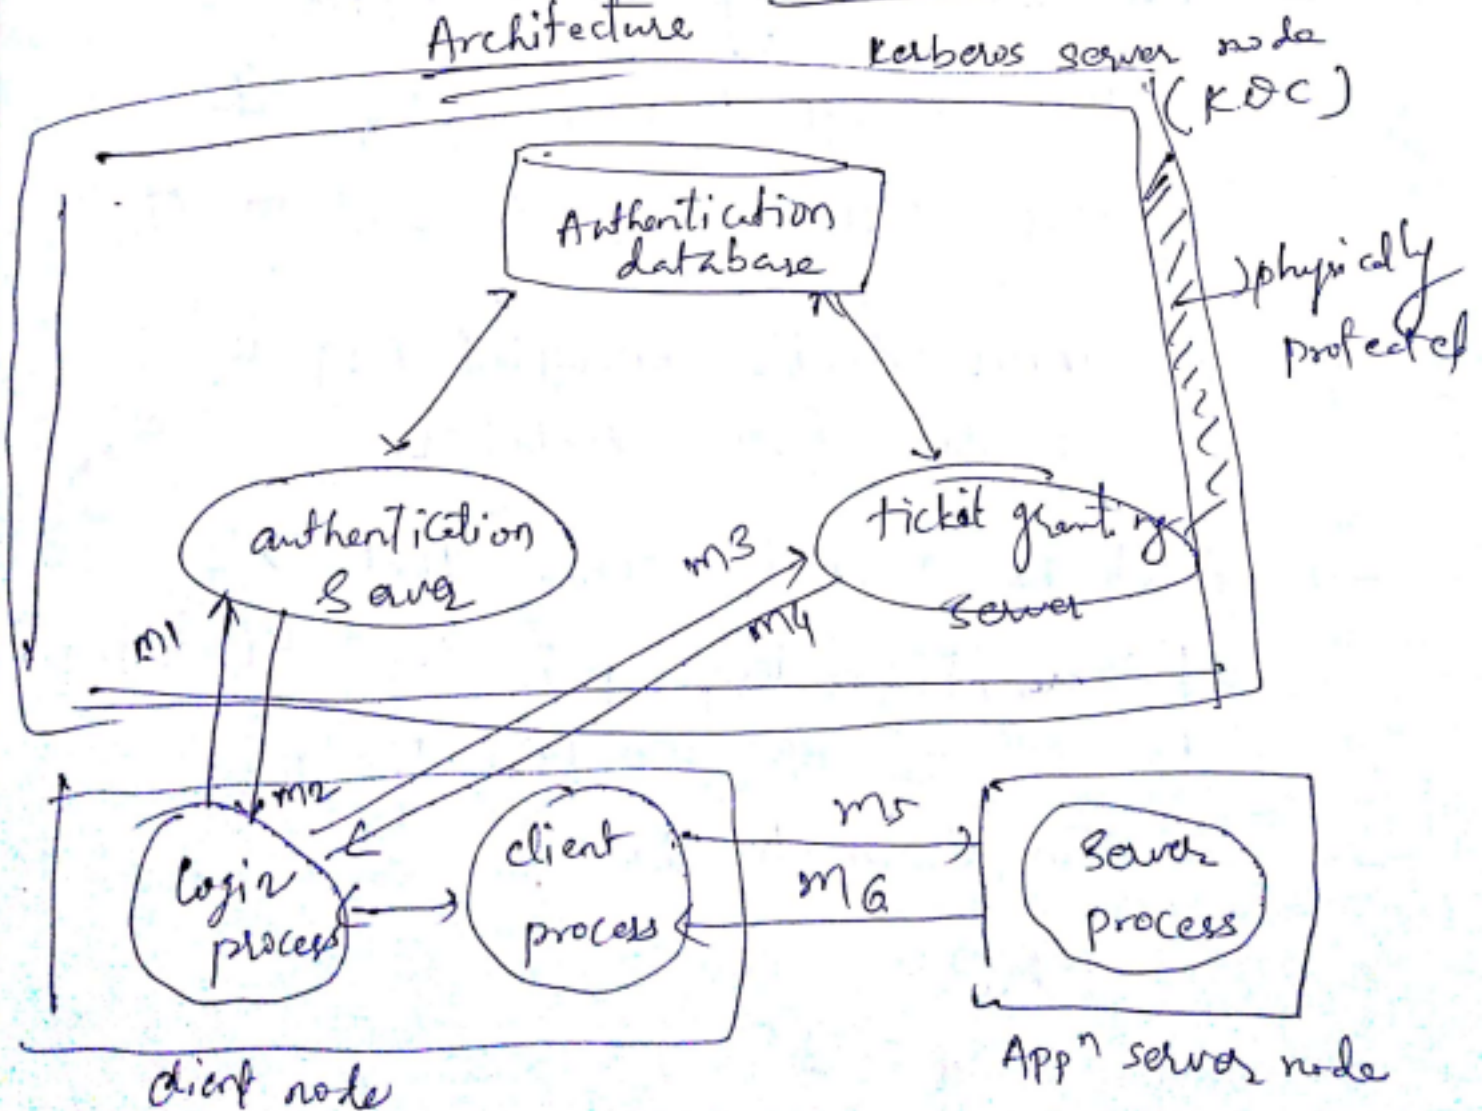 Architecture
Kerberos server node
(KDC)
Authentication
database
physically
protected
authentication
Server
ticket granting
server
m1
m2
m3
m4
login
process
client
process
m5
m6
Server
process
client node
Appⁿ server node